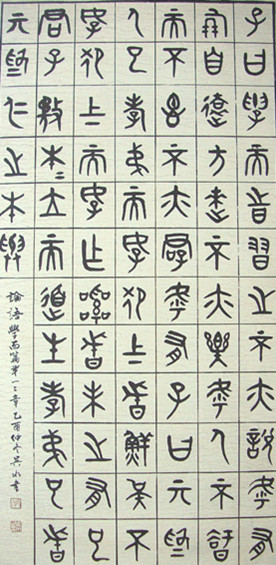 子曰學而時習之不亦說乎有
朋自遠方來不亦樂乎人不知
而不慍不亦君子乎有子曰其為
人也孝弟而好犯上者鮮矣不
好犯上而好作亂者未之有也
君子務本二立而道生孝弟也者
其為仁之本與
論語學而篇第一二章乙酉仲冬